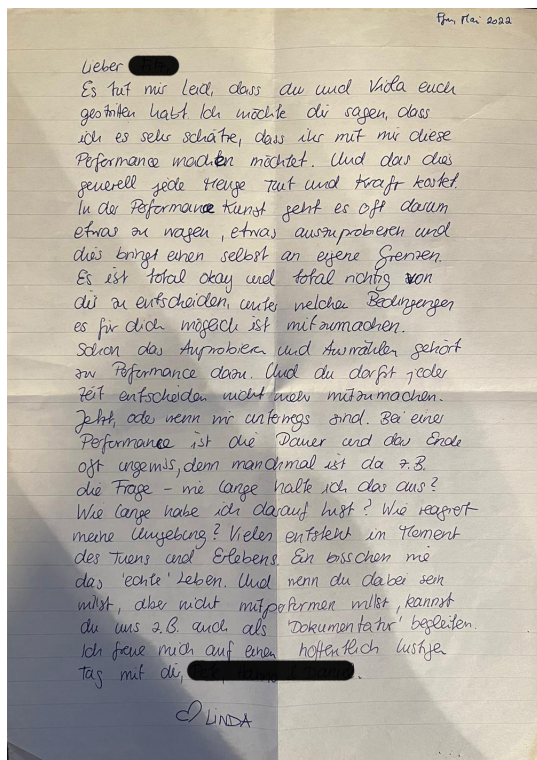 Ffm, Mai 2022
Lieber
Es tut mir Leid, dass du und Viola euch
gestritten habt Ich möchte dir sagen, dass
ich es sehr schätze, dass ihr mit mir diese
Performance machen möchtet. Und das dies
generell jede Menge Mut und Kraft kostet.
In der Peformance Kunst geht es oft darum
etwas zu wagen, etwas auszuprobieren und
dies bringt einen selbst an eigene Grenzen.
Es ist total okay und total richtig von
dir zu entscheiden, unter welchen Bedingungen
es für dich möglich ist mitzumachen.
Schon das Auprobieren und Auswählen gehört
zur Performance dazu. Und du darfst jeder
Zeit entscheiden nicht mehr mitzumachen.
Jetzt, oder wenn wir unterwegs sind. Bei einer
Performance ist die Dauer und das Ende
oft ungewiss, denn manchmal ist da z.B.
die Frage - wie lange halte ich das aus?
Wie lange habe ich darauf Lust? Wie reagiert
meine Umgebung? Vieles entsteht im Moment
des Tuens und Erlebens. Ein bisschen wie
das 'echte' Leben. Und wenn du dabei sein
willst, aber nicht mitperformen willst, kannst
du uns z.B. auch als 'Dokumentatur' begleiten.
Ich freue mich auf einen hoffentlich lustigen
Tag mit dir,
♡ LINDA